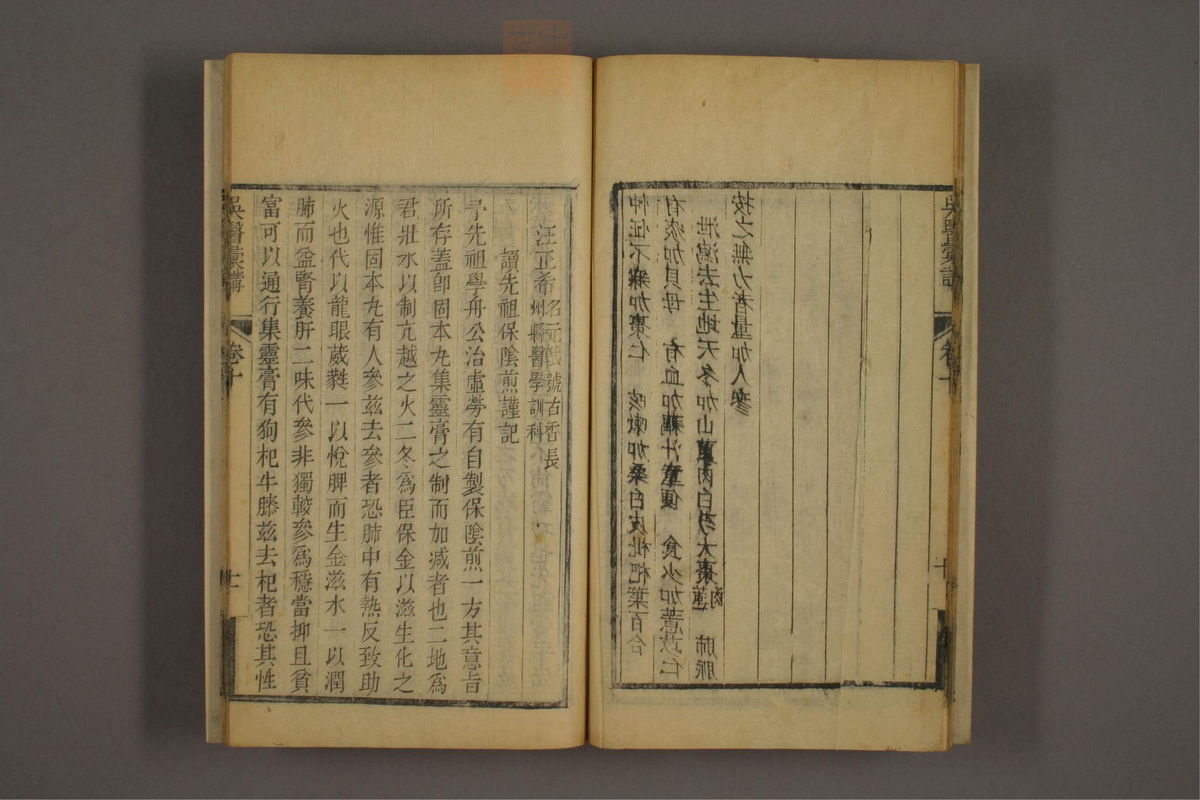 忡怔不寐加棗仁　咳嗽加桑白皮枇杷葉百合
有痰加貝母　有血加藕汁童便　食少加薏苡仁
泄瀉去生地天冬加山萸肉白芍大棗蓮肉　肺脈
按之無力者量加人參
吳醫彙講　卷十　十
汪正希名元軾號古香長州縣醫學訓科
讀先祖保陰煎謹記
予先祖學舟公治虛勞有自製保陰煎一方其意旨
所存蓋卽固本丸集靈膏之制而加減者也二地爲
君壯水以制亢越之火二冬爲臣保金以滋生化之
源惟固本丸有人參兹去參者恐肺中有熱反致助
火也代以龍眼葳蕤一以悅脾而生金滋水一以潤
肺而益腎養肝二味代參非獨較參爲穩當抑且貧
富可以通行集靈膏有枸杞牛膝兹去杞者恐其性
吳醫彙講　卷十　十一